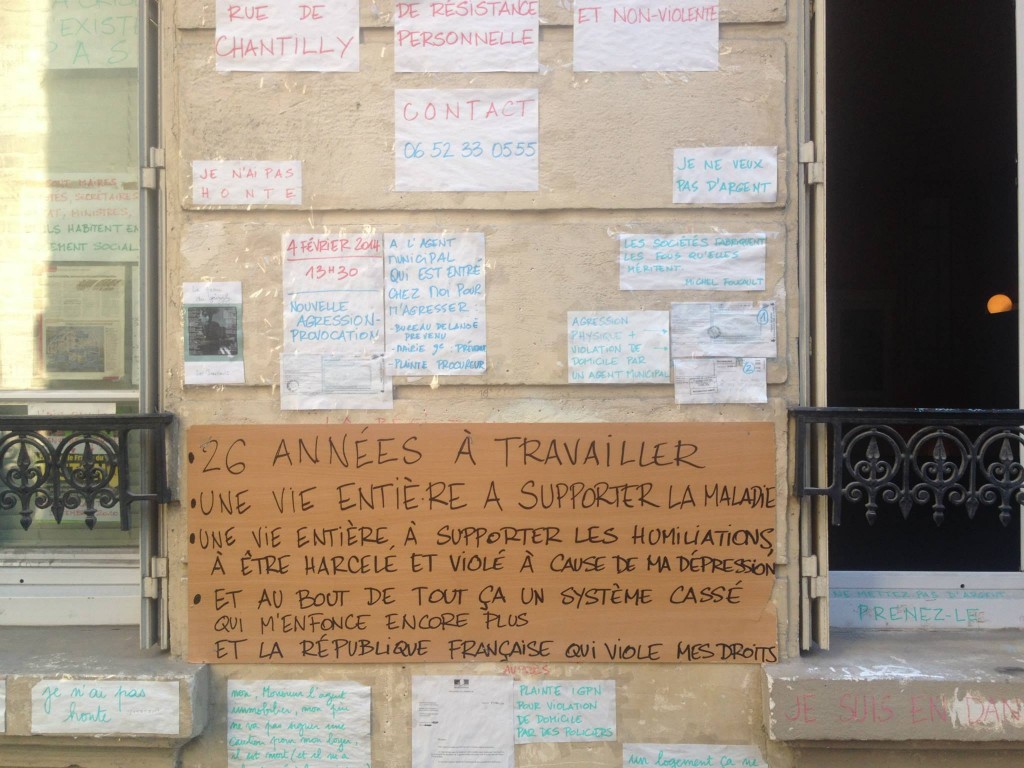 RUE DE
CHANTILLY
DE RÉSISTANCE
PERSONNELLE
ET NON-VIOLENTE
L'EXISTE
PAS
CONTACT
06 52 33 05 55
JE N'AI PAS
HONTE
JE NE VEUX
PAS D'ARGENT
SECRÉTAIRES
MINISTRES,
ILS HABITENT EN
SOCIAL
4 FÉVRIER 2014
13H30
NOUVELLE
AGRESSION-
PROVOCATION
A L'AGENT
MUNICIPAL
QUI EST ENTRÉ
CHEZ MOI POUR
M'AGRESSER
- BUREAU DELANOË
PREVENU
- MAIRIE 9e PRÉVENUE
- PLAINTE PROCUREUR
LES SOCIÉTÉS FABRIQUENT
LES FOUS QU'ELLES
MÉRITENT
MICHEL FOUCAULT
AGRESSION
PHYSIQUE +
VIOLATION DE
DOMICILE PAR
UN AGENT MUNICIPAL
1
2
• 26 ANNÉES À TRAVAILLER
• UNE VIE ENTIÈRE A SUPPORTER LA MALADIE
• UNE VIE ENTIÈRE À SUPPORTER LES HUMILIATIONS,
À ÊTRE HARCELÉ ET VIOLÉ À CAUSE DE MA DÉPRESSION
• ET AU BOUT DE TOUT ÇA UN SYSTÈME CASSÉ
QUI M'ENFONCE ENCORE PLUS
ET LA RÉPUBLIQUE FRANÇAISE QUI VIOLE MES DROITS
NE METTEZ PAS D'ARGENT
PRENEZ-LE
je n'ai pas
honte
non, Monsieur l'agent
immobilier, mon père
ne va pas signer une
caution pour mon loyer,
il est mort/et il n'a
PLAINTE IGPN
POUR VIOLATION
DE DOMICILE
PAR DES POLICIERS
JE SUIS EN DAN
un logement ça ne